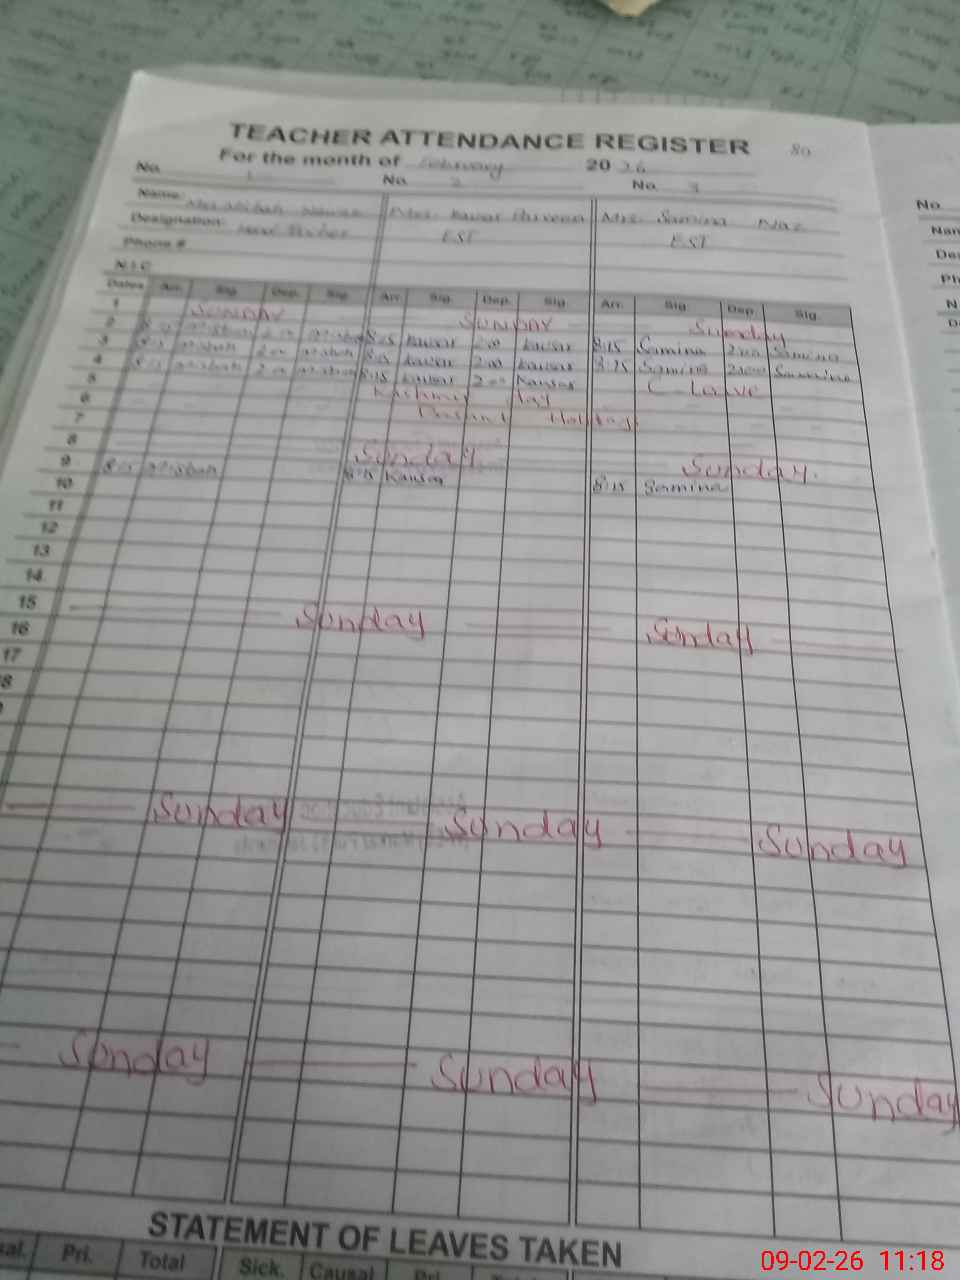 TEACHER ATTENDANCE REGISTER 80
For the month of February 20 26
No. 1 No. 2 No. 3
Name: Mrs. Kausar Parveen Mrs. Samina Naz
Designation: Head Teacher EST EST
Phone #
N.I.C
Dates Arr. Sig. Dep. Sig. Arr. Sig. Dep. Sig. Arr. Sig. Dep. Sig.
1 Sunday Sunday Sunday
2 8:15 Misbah 2:00 Misbah 8:15 Kausar 2:00 Kausar 8:15 Samina 2:00 Samina
3 8:15 Misbah 2:00 Misbah 8:15 Kausar 2:00 Kausar 8:15 Samina 2:00 Samina
4 8:15 Misbah 2:00 Misbah 8:15 Kausar 2:00 Kausar C-Leave
5 Kashmir Day
6 Holiday
7
8 Sunday Sunday.
9 8:15 Misbah 8:15 Kausar 8:15 Samina
10
11
12
13
14
15 Sunday Sunday
16
17
Sunday Sunday Sunday
Sunday Sunday Sunday
STATEMENT OF LEAVES TAKEN
Pri. Total Sick. Causal Pri.
No
09-02-26 11:18